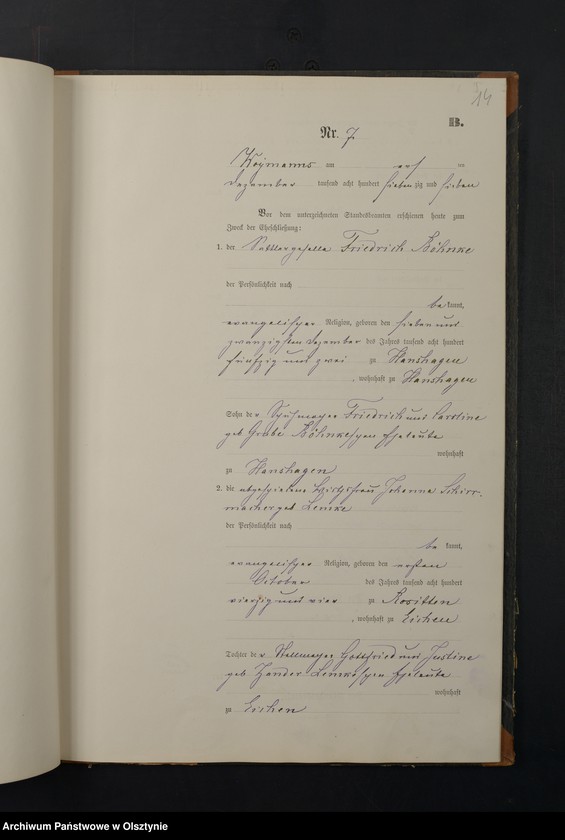 14
B.
Nr. 7.
Woymanns am ten
Dezember tausend acht hundert sieben zig und sieben
Vor dem unterzeichneten Standesbeamten erschienen heute zum
Zweck der Eheschließung:
1. der Sattlergeselle Friedrich Böhnke
der Persönlichkeit nach
be kannt,
evangelischer Religion, geboren den sieben und
zwanzigsten Dezember des Jahres tausend acht hundert
fünfzig und zwei zu Hanshagen
, wohnhaft zu Hanshagen
Sohn der Friedrich und Caroline
geb. Grube Böhnkeschen Eheleute
wohnhaft
zu Hanshagen
2. die abgeschiedene Wirthsfrau Johanna Schirr-
macher geb Lemke
der Persönlichkeit nach
be kannt,
evangelischer Religion, geboren den ersten
October des Jahres tausend acht hundert
vierzig und vier zu Rositten
, wohnhaft zu Eichen
Tochter der Stellmacher Gottfried und Justine
geb. Zander Lemkeschen Eheleute
wohnhaft
zu Eichen
Archiwum Państwowe w Olsztynie